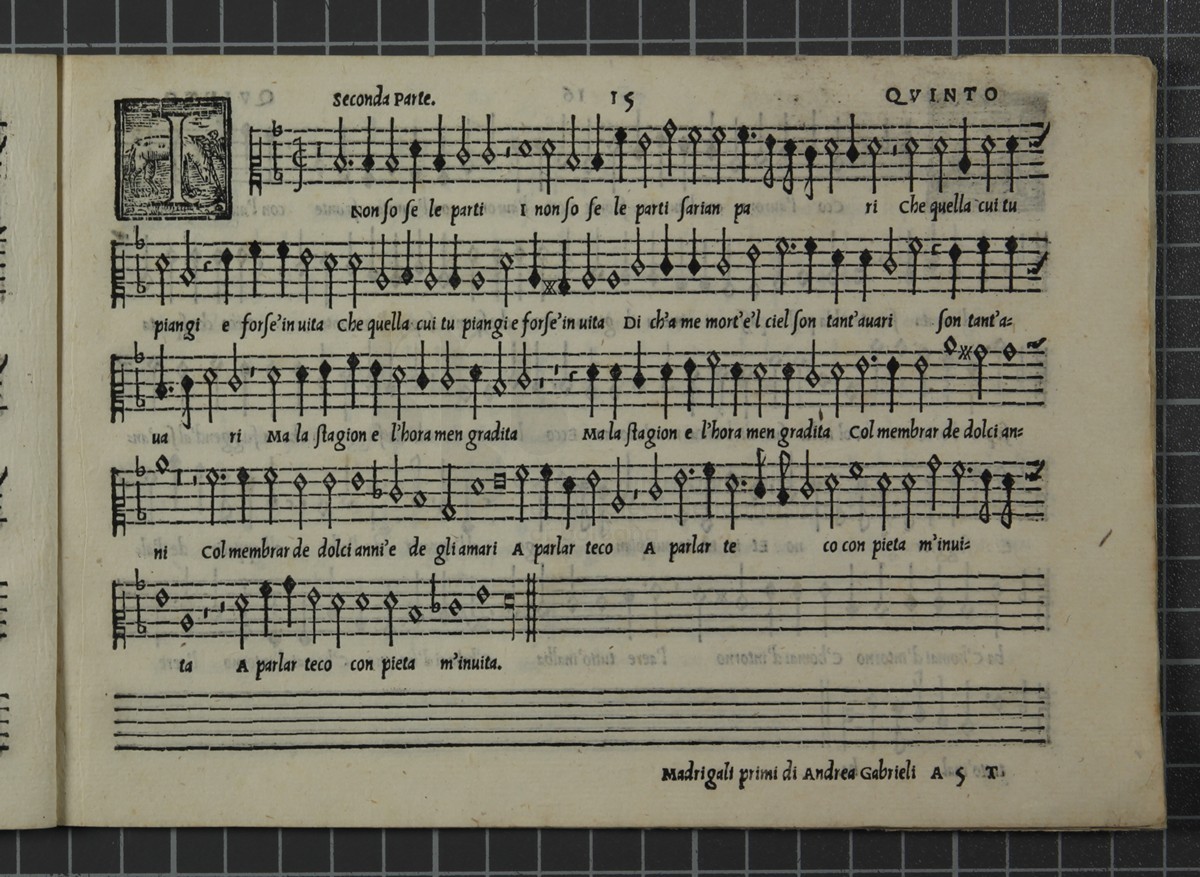 Seconda Parte. 15 QVINTO
I Non so se le parti I non so se le parti sarian pa ri Che quella cui tu
piangi e forse'in uita Che quella cui tu piangi e forse'in uita Di ch'a me mort'e'l ciel son tant'auari son tant'a=
ua ri Ma la stagion e l'hora men gradita Ma la stagion e l'hora men gradita Col membrar de dolci an=
ni Col membrar de dolci anni'e de gli amari A parlar teco A parlar te co con pieta m'inui=
ta A parlar teco con pieta m'inuita.
Madrigali primi di Andrea Gabrieli A 5 T.